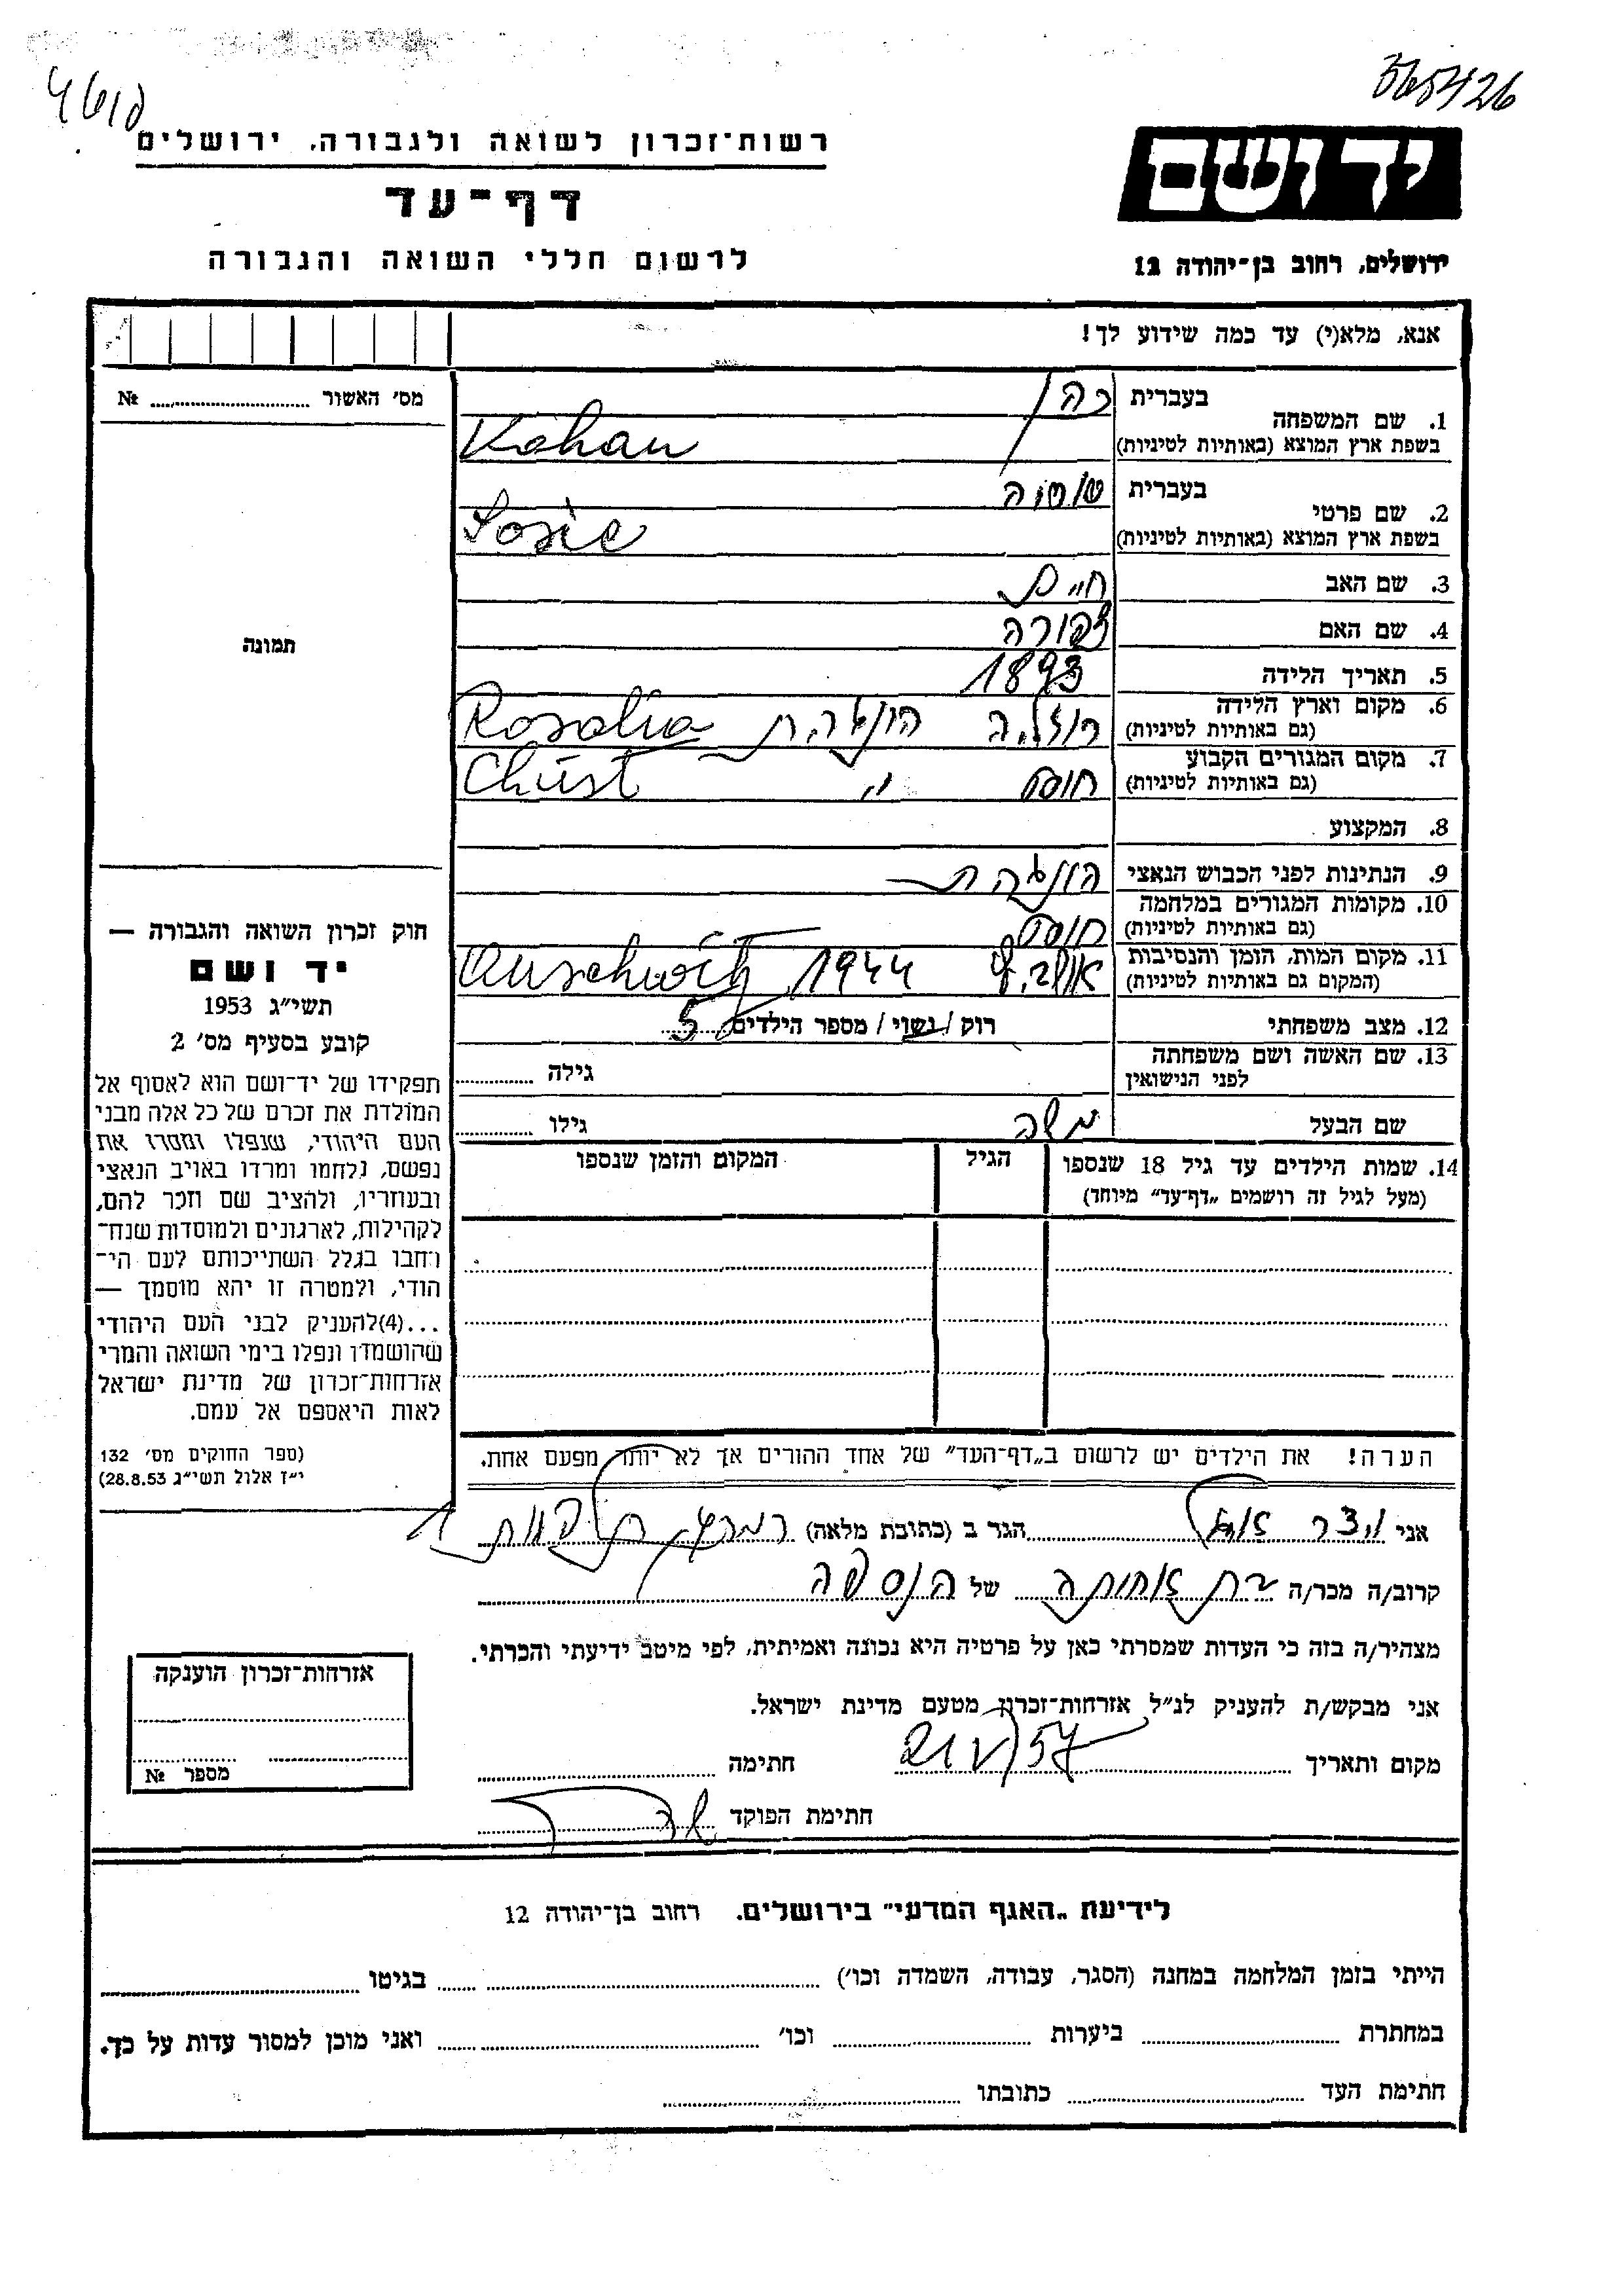 4618
365426
רשות־זכרון לשואה ולגבורה, ירושלים
דף־עד
לרשום חללי השואה והגבורה
יד ושם
ירושלים, רחוב בן־יהודה 12
אנא, מלא(י) עד כמה שידוע לך!
מס׳ האשור № 
1. שם המשפחה
בעברית כהן
בשפת ארץ המוצא (באותיות לטיניות) Kahan
2. שם פרטי
בעברית
בשפת ארץ המוצא (באותיות לטיניות)
3. שם האב חיים
4. שם האם צפורה
5. תאריך הלידה 1893
6. מקום וארץ הלידה
(גם באותיות לטיניות) Rosalia
7. מקום המגורים הקבוע
(גם באותיות לטיניות) חוסט " Chust
8. המקצוע
9. הנתינות לפני הכבוש הנאצי
10. מקומות המגורים במלחמה
(גם באותיות לטיניות) חוסט
11. מקום המות, הזמן והנסיבות
(המקום גם באותיות לטיניות) 1944 Auschwitz
12. מצב משפחתי רוק / נשוי / מספר הילדים 5
13. שם האשה ושם משפחתה
לפני הנישואין גילה
שם הבעל משה גילו
14. שמות הילדים עד גיל 18 שנספו
(מעל לגיל זה רושמים „דף־עד" מיוחד)
הגיל
המקום והזמן שנספו
תמונה
חוק זכרון השואה והגבורה —
יד ושם
תשי״ג 1953
קובע בסעיף מס׳ 2
תפקידו של יד־ושם הוא לאסוף אל
המולדת את זכרם של כל אלה מבני
העם היהודי, שנפלו ומסרו את
נפשם, נלחמו ומרדו באויב הנאצי
ובעוזריו, ולהציב שם וזכר להם,
לקהילות, לארגונים ולמוסדות שנח־
רבו בגלל השתייכותם לעם הי־
הודי, ולמטרה זו יהא מוסמך —
...(4)להעניק לבני העם היהודי
שהושמדו ונפלו בימי השואה והמרי
אזרחות־זכרון של מדינת ישראל
לאות היאספם אל עמם.
(ספר החוקים מס׳ 132
י״ז אלול תשי״ג 28.8.53)
הערה! את הילדים יש לרשום ב„דף־העד" של אחד ההורים אך לא יותר מפעם אחת.
אני הגר ב (כתובת מלאה)
קרוב/ה מכר/ה בת אחותה של הנספה
מצהיר/ה בזה כי העדות שמסרתי כאן על פרטיה היא נכונה ואמיתית, לפי מיטב ידיעתי והכרתי.
אני מבקש/ת להעניק לנ״ל אזרחות־זכרון מטעם מדינת ישראל.
מקום ותאריך 21/V/57 חתימה
חתימת הפוקד
אזרחות־זכרון הוענקה
מספר №
לידיעת „האגף המדעי" בירושלים. רחוב בן־יהודה 12
הייתי בזמן המלחמה במחנה (הסגר, עבודה, השמדה וכו׳) בגיטו
במחתרת ביערות וכו׳ ואני מוכן למסור עדות על כך.
חתימת העד כתובתו